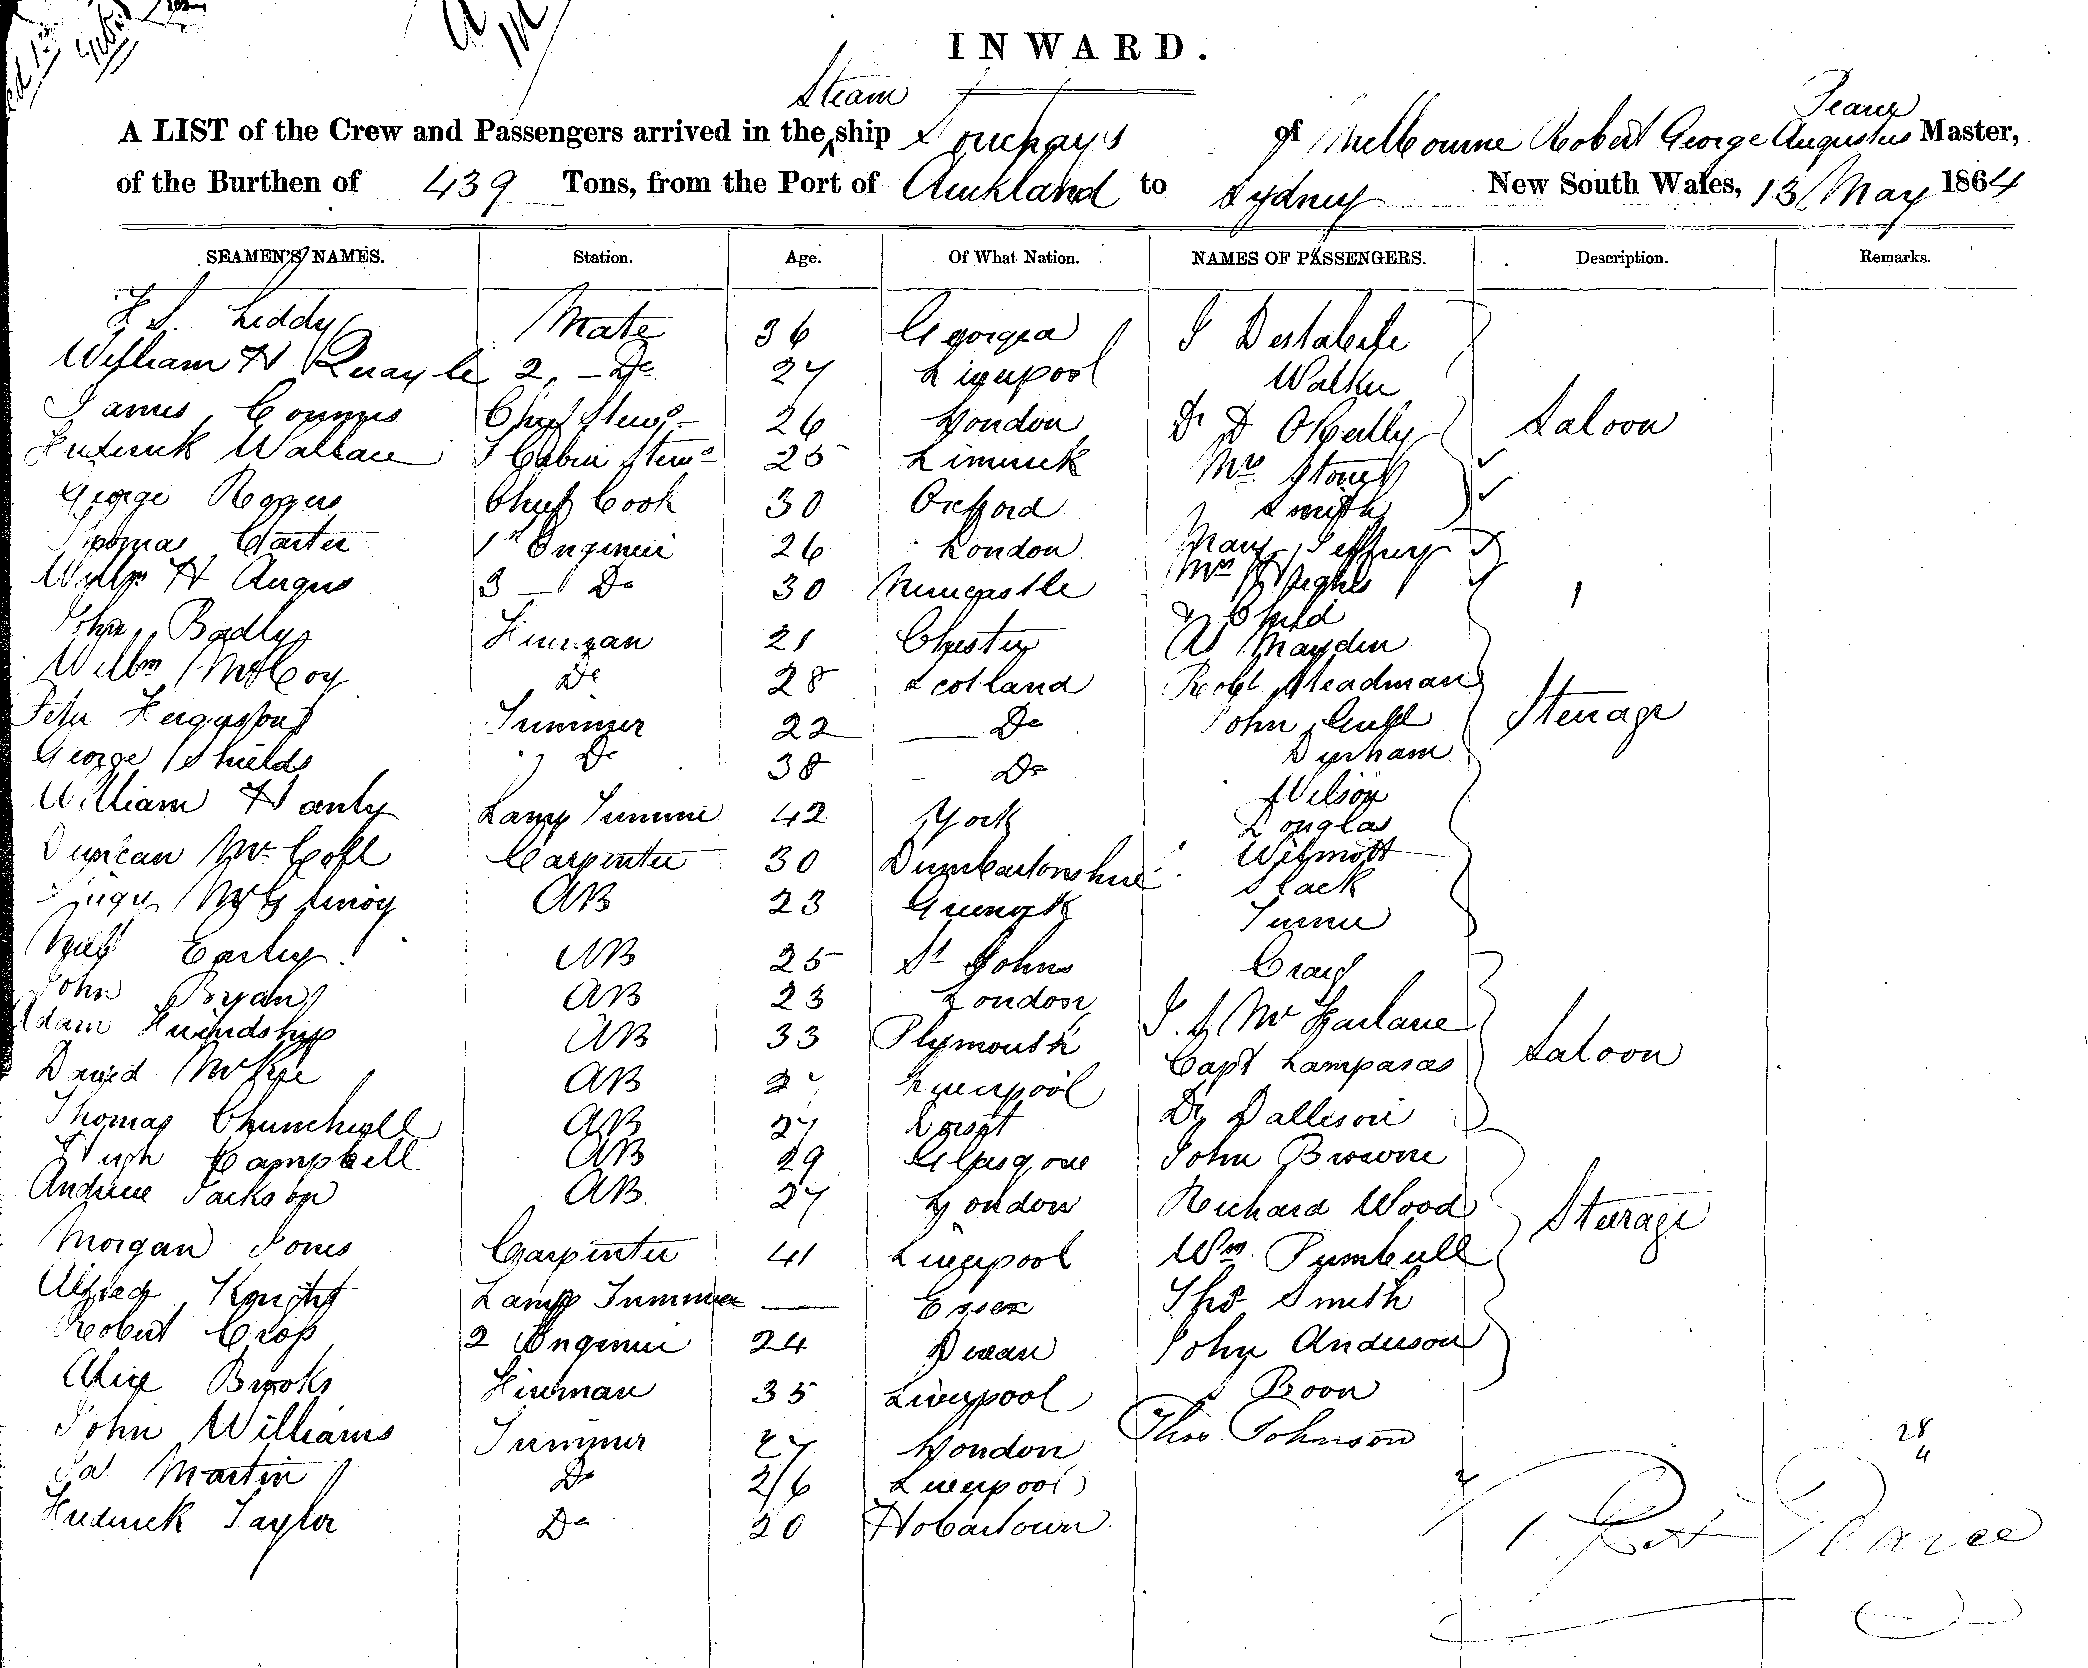 INWARD.
Steam
Pearce
A LIST of the Crew and Passengers arrived in the ship Souchays of Melbourne Robert George Augustus Master,
of the Burthen of 439 Tons, from the Port of Auckland to Sydney New South Wales, 13 May 1864
SEAMEN'S NAMES. Station. Age. Of What Nation. NAMES OF PASSENGERS. Description. Remarks.
Liddy Mate 36 Georgia
William H Quayle 2 - Do 27 Liverpool Walker
James Connors Chief Stewd 26 London Dr D OReilly Saloon
Frederick Wallace Cabin Stewd 25 Limerick Mrs Stone
George Rogers Chief Cook 30 Oxford Smith
Thomas Carter 1st Engineer 26 London Mary Jeffrey
Willm H Angus 3 - Do 30 Newcastle Mrs Hughes
John Badly Fireman 21 Chester & Child
Willm McCoy Do 28 Scotland W Mayden
Peter Ferguson Trimmer 22 Do Robt Steadman Steerage
George Shields Do 38 Do John
William Hanly Lamp Trimmer 42 York Durham
Duncan McColl Carpenter 30 Dumbartonshire Wilson
AB 23 Greenock Douglas
Neil Earley AB 25 St Johns Wilmott
John Bryan AB 23 London Slack
Adam Friendship AB 33 Plymouth Turner
David McKie AB Liverpool Craig
Thomas Churchill AB 27 Dorset McFarlane
Hugh Campbell AB 29 Glasgow Capt Lampasas Saloon
Andrew Jackson AB 27 London Dr Dalleson
Morgan Jones Carpenter 41 Liverpool John Browne
Alfred Knight Lamp Trimmer — Essex Richard Wood Steerage
Robert Crop 2 Engineer 24 Devan Wm Turnbull
Alice Brooks Fireman 35 Liverpool Thos Smith
John Williams Trimmer 27 London John Anderson
Martin Do 26 Liverpool Boon
Frederick Taylor Do 20 Hobartown Thos Johnson
28
4
Pearce